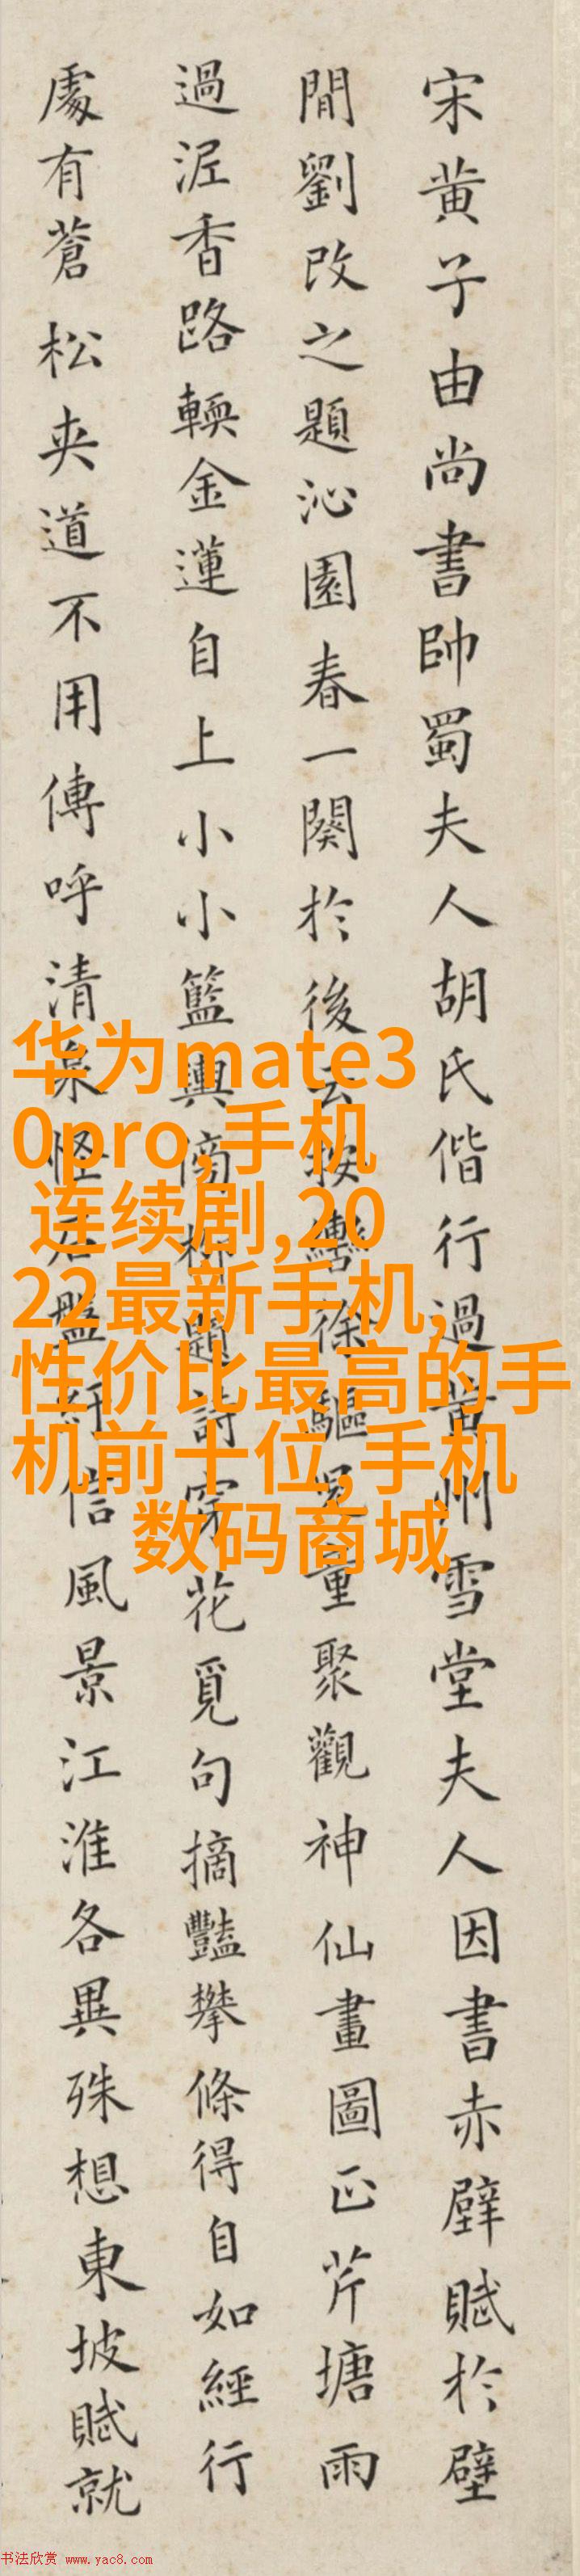 宋黄子由尚書帥蜀夫人胡氏偕行過黄州雪堂夫人因書赤壁賦於壁
間劉改之題沁園春一闋於後云按轡徐驅兒童聚觀神仙畫圖正芹塘雨
過泥香路輭金蓮自上小小籃輿傍柳題詩穿花覓句摘豔攀條得自如經行
處有蒼松夾道不用傳呼清泉怪石盤紆信風景江淮各異殊想東坡賦就
华为mate3
0pro,手机
连续剧,20
22最新手机,
性价比最高的手
机前十位,手机
数码商城
书法欣赏 www.yac8.com